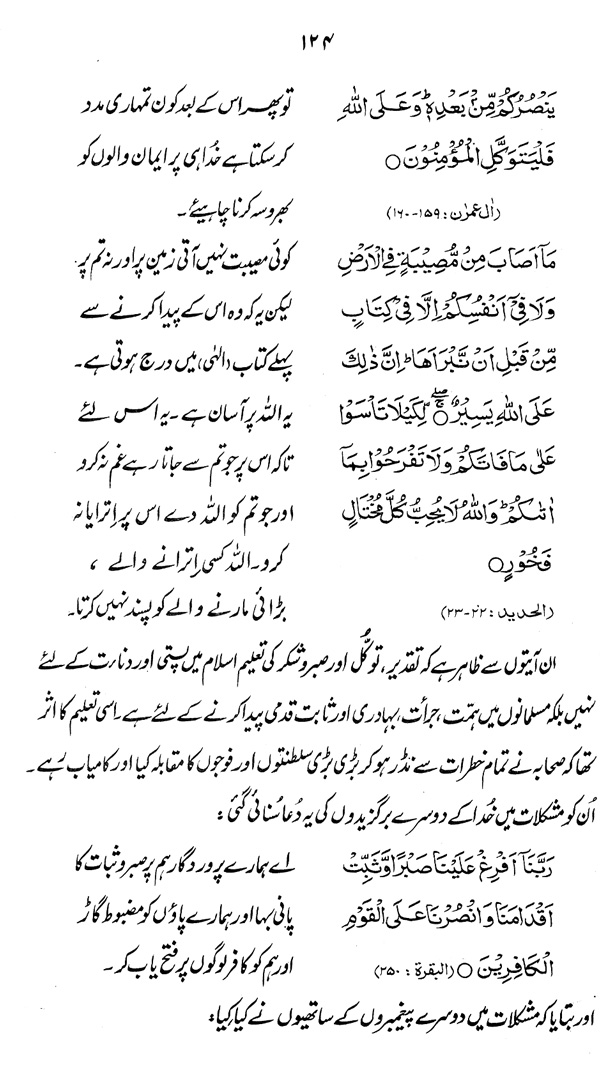 ۱۲۴
یَنْصُرُكُمْ مِّنْۢ بَعْدِهٖ ؕ وَعَلَی اللّٰهِ
تو پھر اس کے بعد کون تمہاری مدد
فَلْیَتَوَكَّلِ الْمُؤْمِنُوْنَ ○
کر سکتا ہے خدا ہی پر ایمان والوں کو
(اٰل عمرٰن: ۱۵۹-۱۶۰)
بھروسہ کرنا چاہیئے۔
مَاۤ اَصَابَ مِنْ مُّصِیْبَةٍ فِی الْاَرْضِ
کوئی مصیبت نہیں آتی زمین پر اور نہ تم پر
وَلَا فِیْۤ اَنْفُسِكُمْ اِلَّا فِیْ كِتَابٍ
لیکن یہ کہ وہ اس کے پیدا کرنے سے
مِّنْ قَبْلِ اَنْ نَّبْرَاَهَا ؕ اِنَّ ذٰلِكَ
پہلے کتاب (الٰہی) میں درج ہوتی ہے۔
عَلَی اللّٰهِ یَسِیْرٌ ○ لِّكَیْلَا تَاْسَوْا
یہ اللہ پر آسان ہے۔ یہ اس لئے
عَلٰی مَا فَاتَكُمْ وَلَا تَفْرَحُوْا بِمَاۤ
تاکہ اس پر جو تم سے جاتا رہے غم نہ کرو
اٰتٰىكُمْ ؕ وَاللّٰهُ لَا یُحِبُّ كُلَّ مُخْتَالٍ
اور جو تم کو اللہ دے اس پر اِترایا نہ
فَخُوْرٍ ○
کرو۔ اللہ کسی اِترانے والے ،
(الحدید: ۲۲-۲۳)
بڑائی مارنے والے کو پسند نہیں کرتا۔
ان آیتوں سے ظاہر ہے کہ تقدیر، توکُّل اور صبر و شکر کی تعلیم اسلام میں پستی اور دنارت کے لئے
نہیں بلکہ مسلمانوں میں ہمّت، جرأت، بہادری اور ثابت قدمی پیدا کرنے کے لئے ہے۔ اِسی تعلیم کا اثر
تھا کہ صحابہ نے تمام خطرات سے نڈر ہو کر بڑی بڑی سلطنتوں اور فوجوں کا مقابلہ کیا اور کامیاب رہے۔
اُن کو مشکلات میں خُدا کے دوسرے برگزیدوں کی یہ دُعا سُنائی گئی:
رَبَّنَاۤ اَفْرِغْ عَلَیْنَا صَبْرًا وَّثَبِّتْ
اے ہمارے پروردگار ہم پر صبر و ثبات کا
اَقْدَامَنَا وَانْصُرْنَا عَلَی الْقَوْمِ
پانی بہا اور ہمارے پاؤں کو مضبوط گاڑ
الْكَافِرِیْنَ ○ (البقرة: ۲۵۰)
اور ہم کو کافر لوگوں پر فتح یاب کر۔
اور بتایا کہ مشکلات میں دوسرے پیغمبروں کے ساتھیوں نے کیا کِیا: